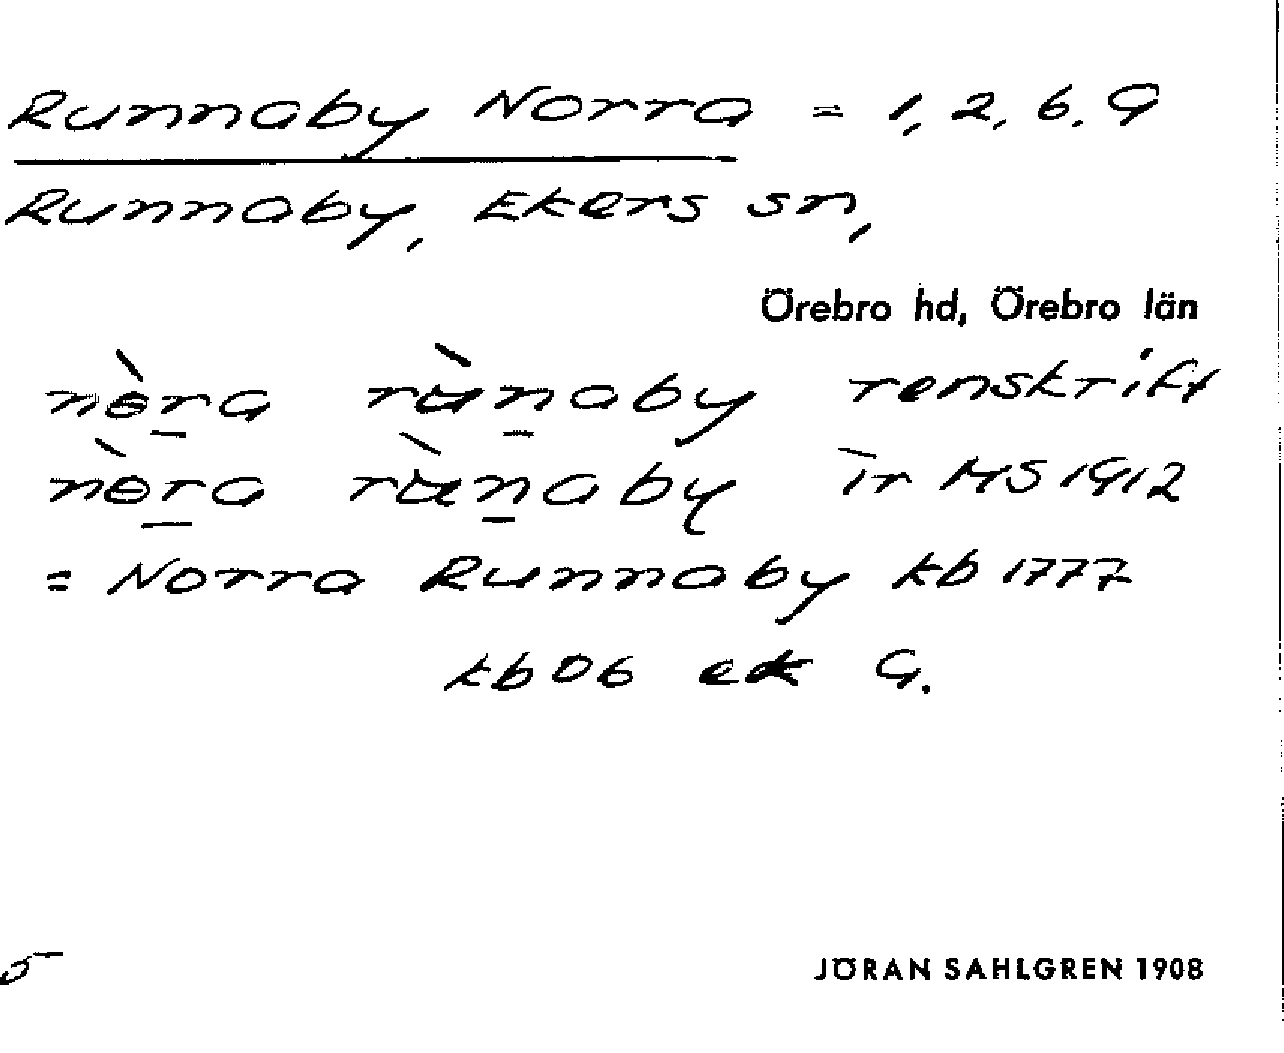 Runnaby Norra = 1, 2, 6, 9
Runnaby, Ekers sn,
Örebro hd, Örebro län
nɵ̀ra rʉ̀naby renskrift
nɵ̀ra rʉ̀naby ir MS 1912
= Norra Runnaby kb 1777
kb 06 ek 9.
5
JÖRAN SAHLGREN 1908